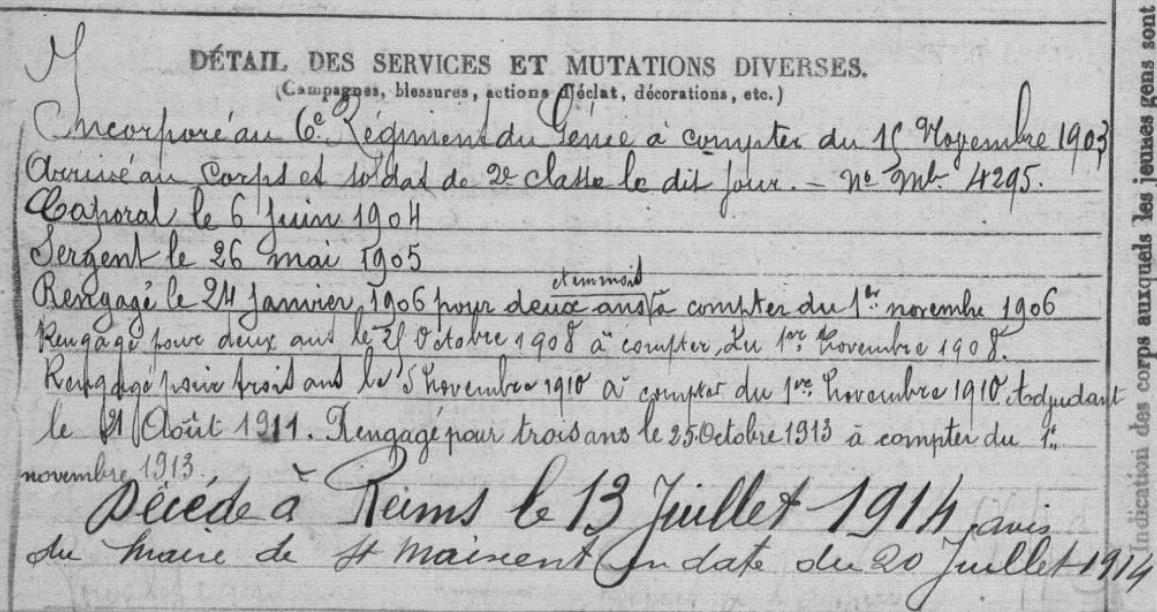 DÉTAIL DES SERVICES ET MUTATIONS DIVERSES.
(Campagnes, blessures, actions d'éclat, décorations, etc.)
Incorporé au 6e Régiment du Génie à compter du 15 Novembre 1903
Arrivé au Corps et soldat de 2e classe le dit jour. – No Mle 4295.
Caporal le 6 juin 1904
Sergent le 26 mai 1905
et un mois
Rengagé le 24 janvier 1906 pour deux ans à compter du 1er novembe 1906
Rengagé pour deux ans le Octobre 1908 à compter du 1er Novembre 1908.
Rengagé pour trois ans le 5 Novembre 1910 à compter du 1er Novembre 1910. Adjudant
le 21 Août 1911. Rengagé pour trois ans le 25 Octobre 1913 à compter du 1er
novembre 1913.
Décédé à Reims le 13 Juillet 1914, avis
du Maire de St Maixent en date du 20 Juillet 1914
Indication des corps auxquels les jeunes gens sont